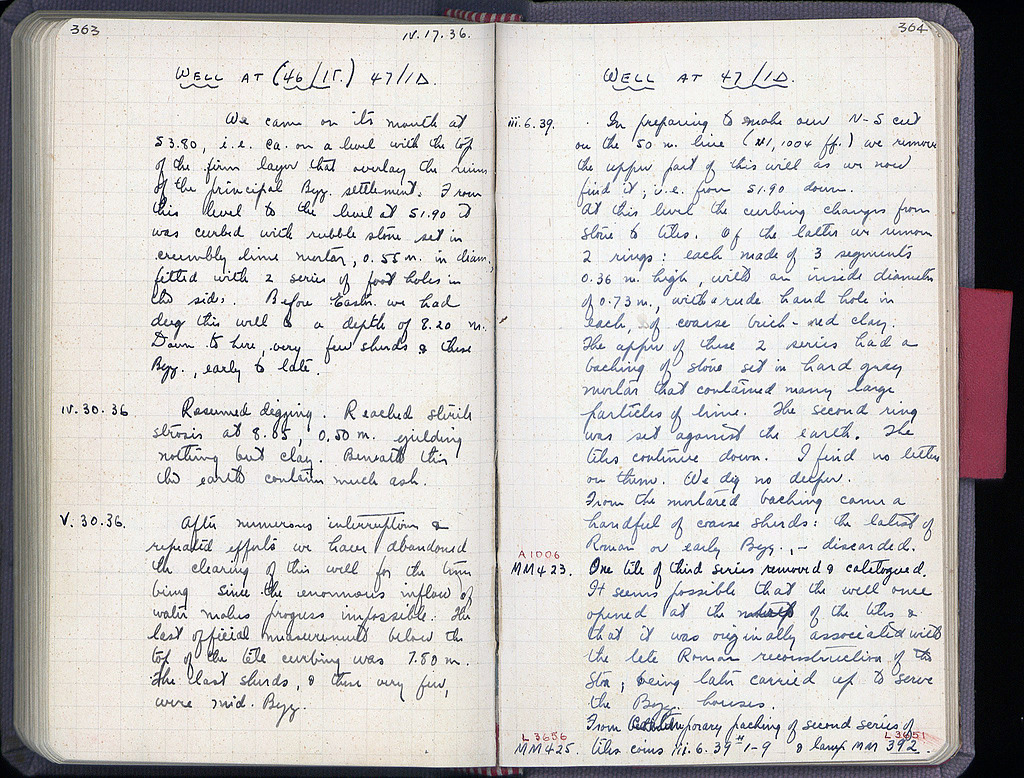 363
IV.17.36.
WELL AT (46/ΙΓ.) 47/ΙΔ.
We came on its mouth at
53.80, i.e. ca. on a level with the top
of the firm layer that overlay the ruins
of the principal Byz. settlement. From
this level to the level at 51.90 it
was curbed with rubble stone set in
crumbly lime mortar, 0.55 m. in diam.,
fitted with 2 series of foot holes in
the sides. Before Easter we had
dug this well to a depth of 8.20 m.
Down to here, very few sherds & these
Byz., early to late.
IV.30.36 Resumed digging. Reached sterile
strosis at 8.05, 0.50 m. yielding
nothing but clay. Beneath this
the earth contains much ash.
V.30.36. After numerous interruptions &
repeated efforts we have abandoned
the clearing of this well for the time
being since the enormous inflow of
water makes progress impossible. The
last official measurement below the
top of the tile curbing was 7.50 m.
The last sherds, & these very few,
were mid. Byz.
364
WELL AT 47/ΙΔ.
iii.6.39. In preparing to make our N-S cut
on the 50 m. line (1004 ff.) we remove
the upper part of this well as we now
find it; i.e. from 51.90 down.
At this level the curbing changes from
stone to tiles. Of the latter we remove
2 rings: each made of 3 segments
0.36 m. high, with an inside diameter
of 0.73 m., with a rude hand hole in
each, of coarse brick-red clay.
The upper of these 2 series had a
backing of stone set in hard gray
mortar that contained many large
particles of lime. The second ring
was set against the earth. The
tiles continue down. I find no letters
on them. We dig no deeper.
From the mortared backing came a
handful of coarse sherds: the latest of
Roman or early Byz., - discarded.
A1006
MM423. One tile of third series removed & catalogued.
It seems possible that the well once
opened at the of the tiles &
that it was originally associated with
the late Roman reconstruction of the
Stoa, being later carried up to serve
the Byz. houses.
From packing of second series of
L3656 L3651
MM425. tiles coins iii.6.39 #1-9 & lamp MM 392.